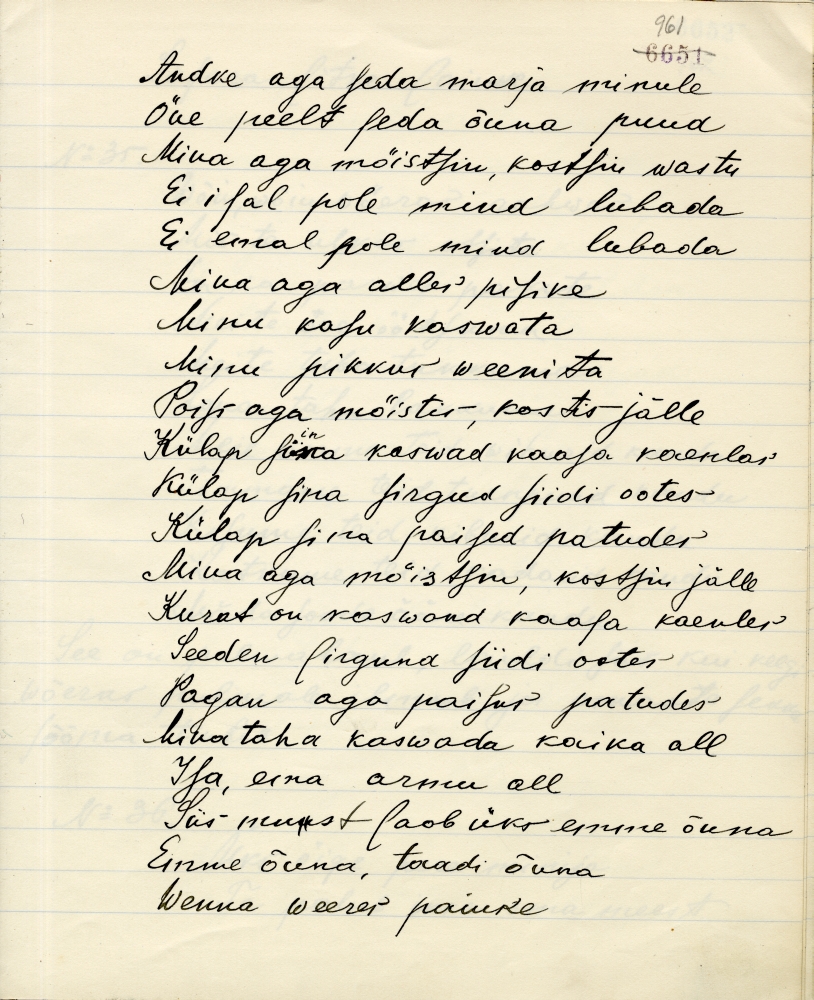 961
6651
Andke aga seda marja minule
Öue peelt seda õuna puud
Mina aga mõistsin, kostsin wastu
Ei isal pole mind lubada
Ei emal pole mind lubada
Mina aga alles pisike
Minu kasu kaswata
Minu pikkus weenita
Poiss aga mõistis, kostis jälle
Külap sina kaswad kaasa kaenlas
Külap sina sirgud siidi ootes
Külap sina paised patudes
Mina aga mõistsin, kostsin jälle
Kurat on kaswand kaasa kaenles
Seeden sirgund siidi ootes
Pagan aga paisus patudes
Mina taha kaswada kaika all
Isa, ema armu all
Siis muust saob üks emme õuna
Emme õuna, taadi õuna
Wenna weeres painke